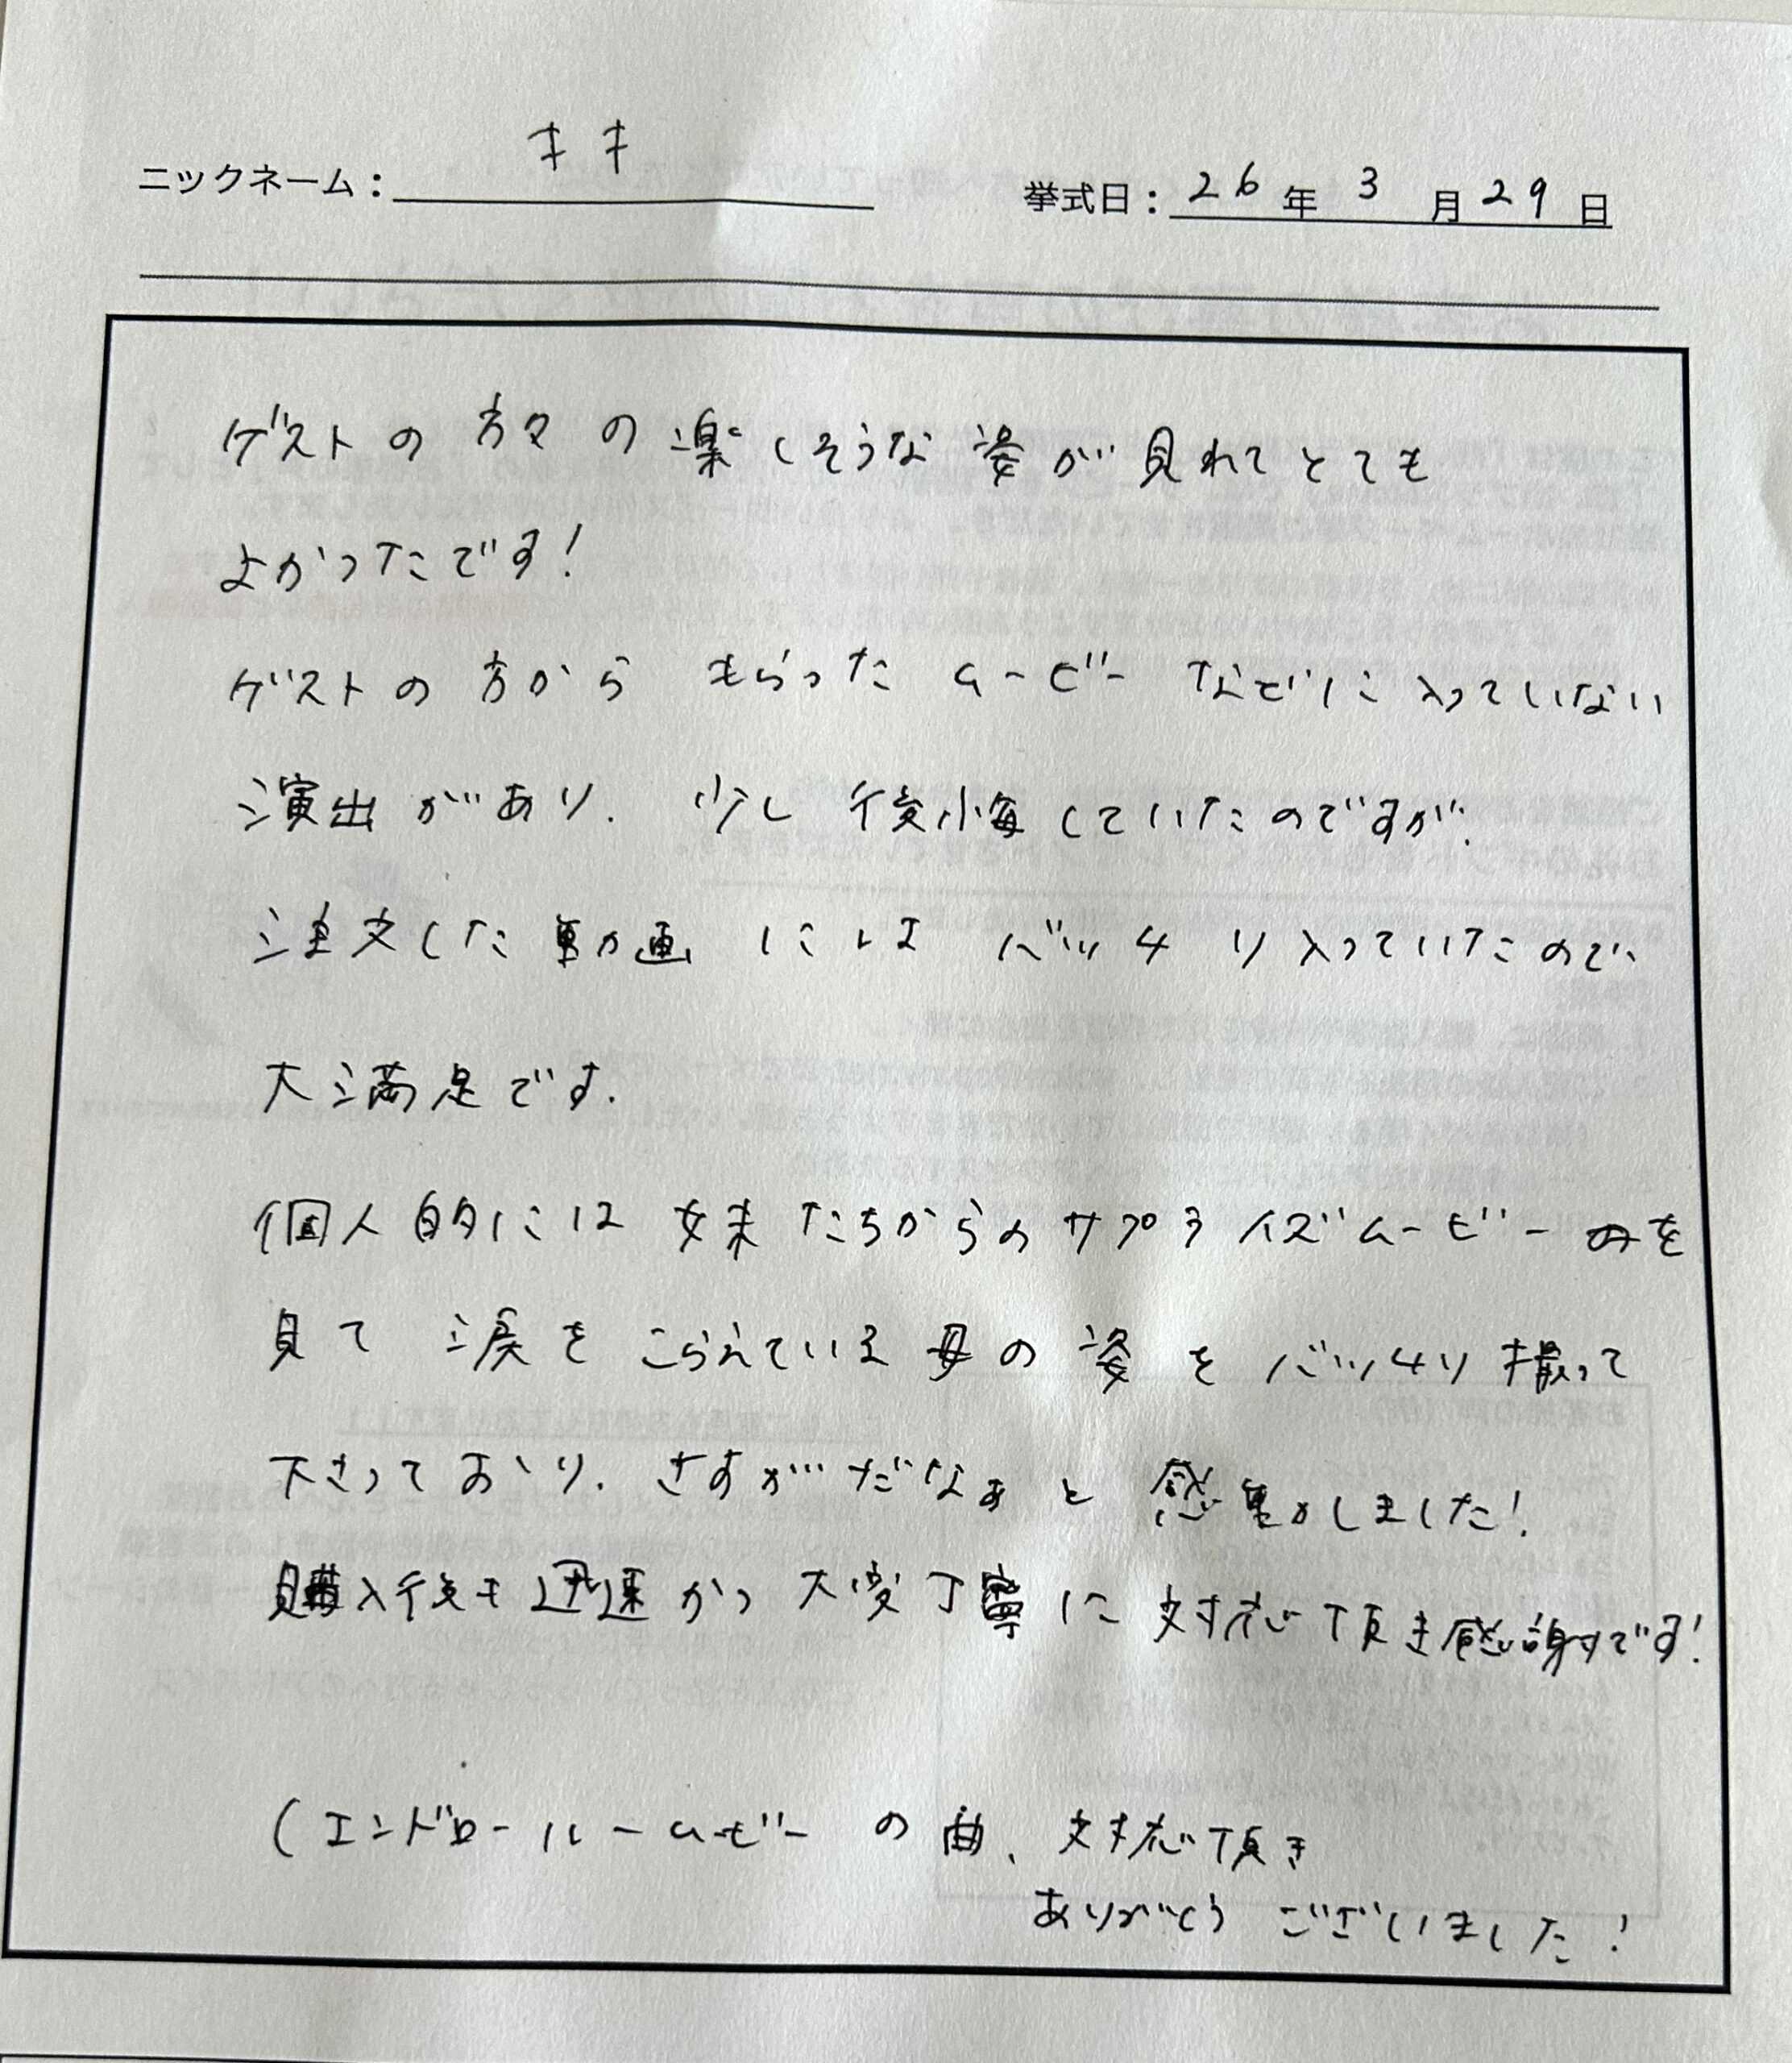 ニックネーム：キキ
挙式日：26年3月29日
ゲストの方々の楽しそうな姿が見れてとても
よかったです！
ゲストの方からもらったムービーなどに入っていない
演出があり、少し後悔していたのですが、
注文した動画にはバッチリ入っていたので、
大満足です。
個人的には妹たちからのサプライズムービーを
見て涙をこらえている母の姿をバッチリ撮って
下さっており、さすがだなぁと感動しました！
購入後も迅速かつ大変丁寧に対応頂き感謝です！
（エンドロールームービーの曲、対応頂き
ありがとうございました！